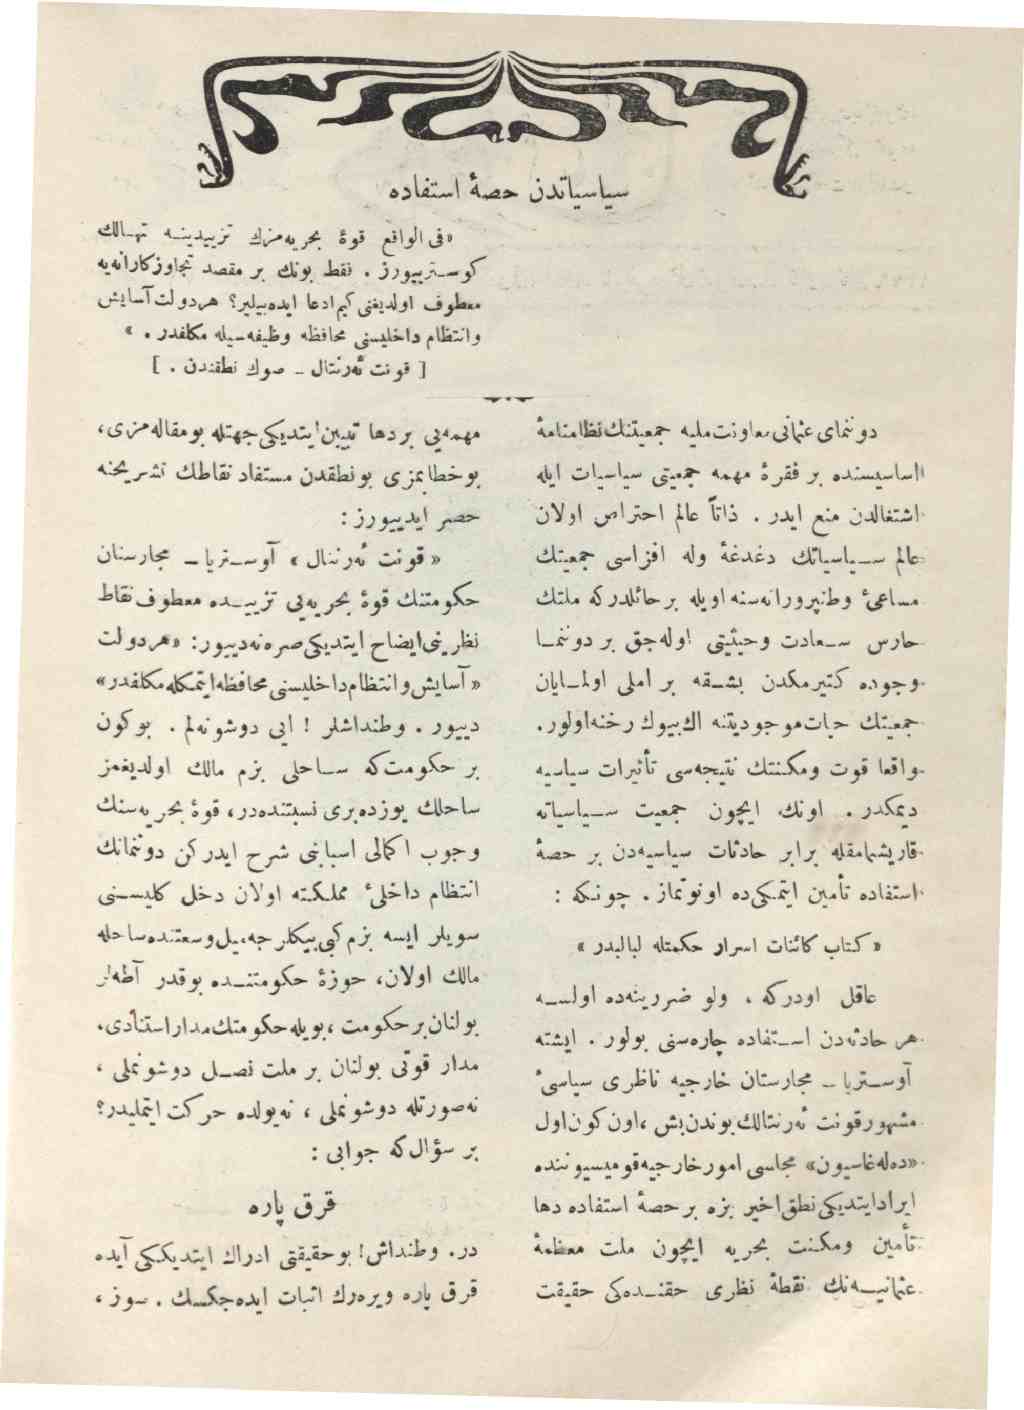 سياسياتدن حصهٔ استفاده
«فی الواقع قوهٔ بحريه‌مزك تزييدينه تهالك
كوسترييورز . فقط بونك بر مقصد تجاوزكارانه‌يه
معطوف اولديغنی كيم ادعا ايده‌بيلير؟ هر دولت آسايش
وانتظام داخليسنی محافظه وظيفه‌سيله مكلفدر . »
[ قونت ئه‌رنتال ـ صوك نطقندن . ]
دوننمای عثمانی معاونت مليه جمعيتنك نظامنامهٔ
اساسيسنده بر فقرهٔ مهمه جمعيتی سياسيات ايله
اشتغالدن منع ايدر . ذاتاً عالم احتراص اولان
عالم سياسياتك دغدغهٔ وله افزاسی جمعيتك
مساعیٔ وطنپرورانه‌سنه اويله بر حائلدركه ملتك
حارس سعادت وحيثيتی اوله‌جق بر دوننما
وجوده كتيرمكدن بشقه بر املی اولمايان
جمعيتك حيات موجوديتنه اك بيوك رخنه اولور.
واقعا قوت ومكنتك نتيجه‌سی تأثيرات سياسيه
ديمكدر . اونك ايچون جمعيت سياسياته
قاريشمامقله برابر حادثات سياسيه‌دن بر حصهٔ
استفاده تأمين ايتمكی‌ده اونوتماز . چونكه :
« كتاب كائنات اسرار حكمتله لبالبدر »
عاقل اودركه ، ولو ضررينه‌ده اولسه
هر حادثه‌دن استفاده چاره‌سنی بولور . ايشته
آوستريا ـ مجارستان خارجيه ناظری سياسیٔ
مشهور قونت ئه‌رنتالك بوندن بش ، اون كون اول
«ده‌له‌غاسيون» مجلسی امور خارجيه قوميسيوننده
ايراد ايتديكی نطق اخير بزه بر حصهٔ استفاده دها
تأمين ومكنت بحريه ايچون ملت معظمهٔ
عثمانيه‌نك نقطهٔ نظری حقنده‌كی حقيقت
مهمه‌يی بر دها تبيين ايتديكی جهتله بو مقاله‌مزی،
بو خطابمزی بو نطقدن مستفاد نقاطك تشريحنه
حصر ايدييورز :
« قونت ئه‌رنتال » آوستريا ـ مجارستان
حكومتنك قوهٔ بحريه‌يی تزييده معطوف نقاط
نظرينی ايضاح ايتديكی صره نه‌دييور: «هر دولت
« آسايش وانتظام داخليسنی محافظه ايتمكله مكلفدر»
دييور . وطنداشلر ! ايی دوشونه‌لم . بوكون
بر حكومت كه ساحلی بزم مالك اولديغمز
ساحلك يوزده بری نسبتنده‌در، قوهٔ بحريه‌سنك
وجوب اكمالی اسبابنی شرح ايدركن دوننمانك
انتظام داخلیٔ مملكته اولان دخل كليسنی
سويلر ايسه بزم كبی بيكلرجه ميل وسعتنده ساحله
مالك اولان، حوزهٔ حكومتنده بوقدر آطه‌لر
بولنان بر حكومت ، بويله حكومتك مدار استنادی،
مدار قوتی بولنان بر ملت نصل دوشونملی ،
نه‌صورتله دوشونملی ، نه‌يولده حركت ايتمليدر؟
بر سؤال كه جوابی :
قرق پاره
در. وطنداش! بو حقيقتی ادراك ايتديككی آيده
قرق پاره ويره‌رك اثبات ايده‌جكسك . سوز ،